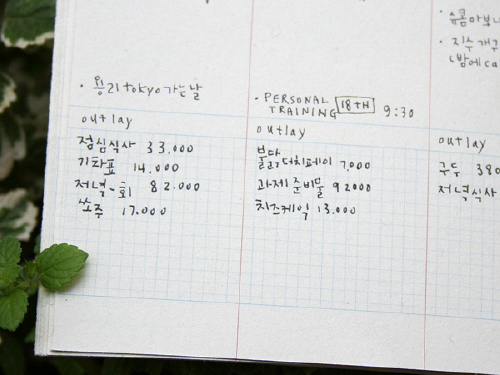 · 용리 tokyo 가는날
outlay
점심식사 33,000
기차표 14.000
저녁-회 82.000
소주 17.000
· PERSONAL
TRAINING 18TH 9:30
outlay
더치페이 7,000
과제 준비물 92000
치즈케익 13.000
· 지수
outlay
구두 380
저녁식사